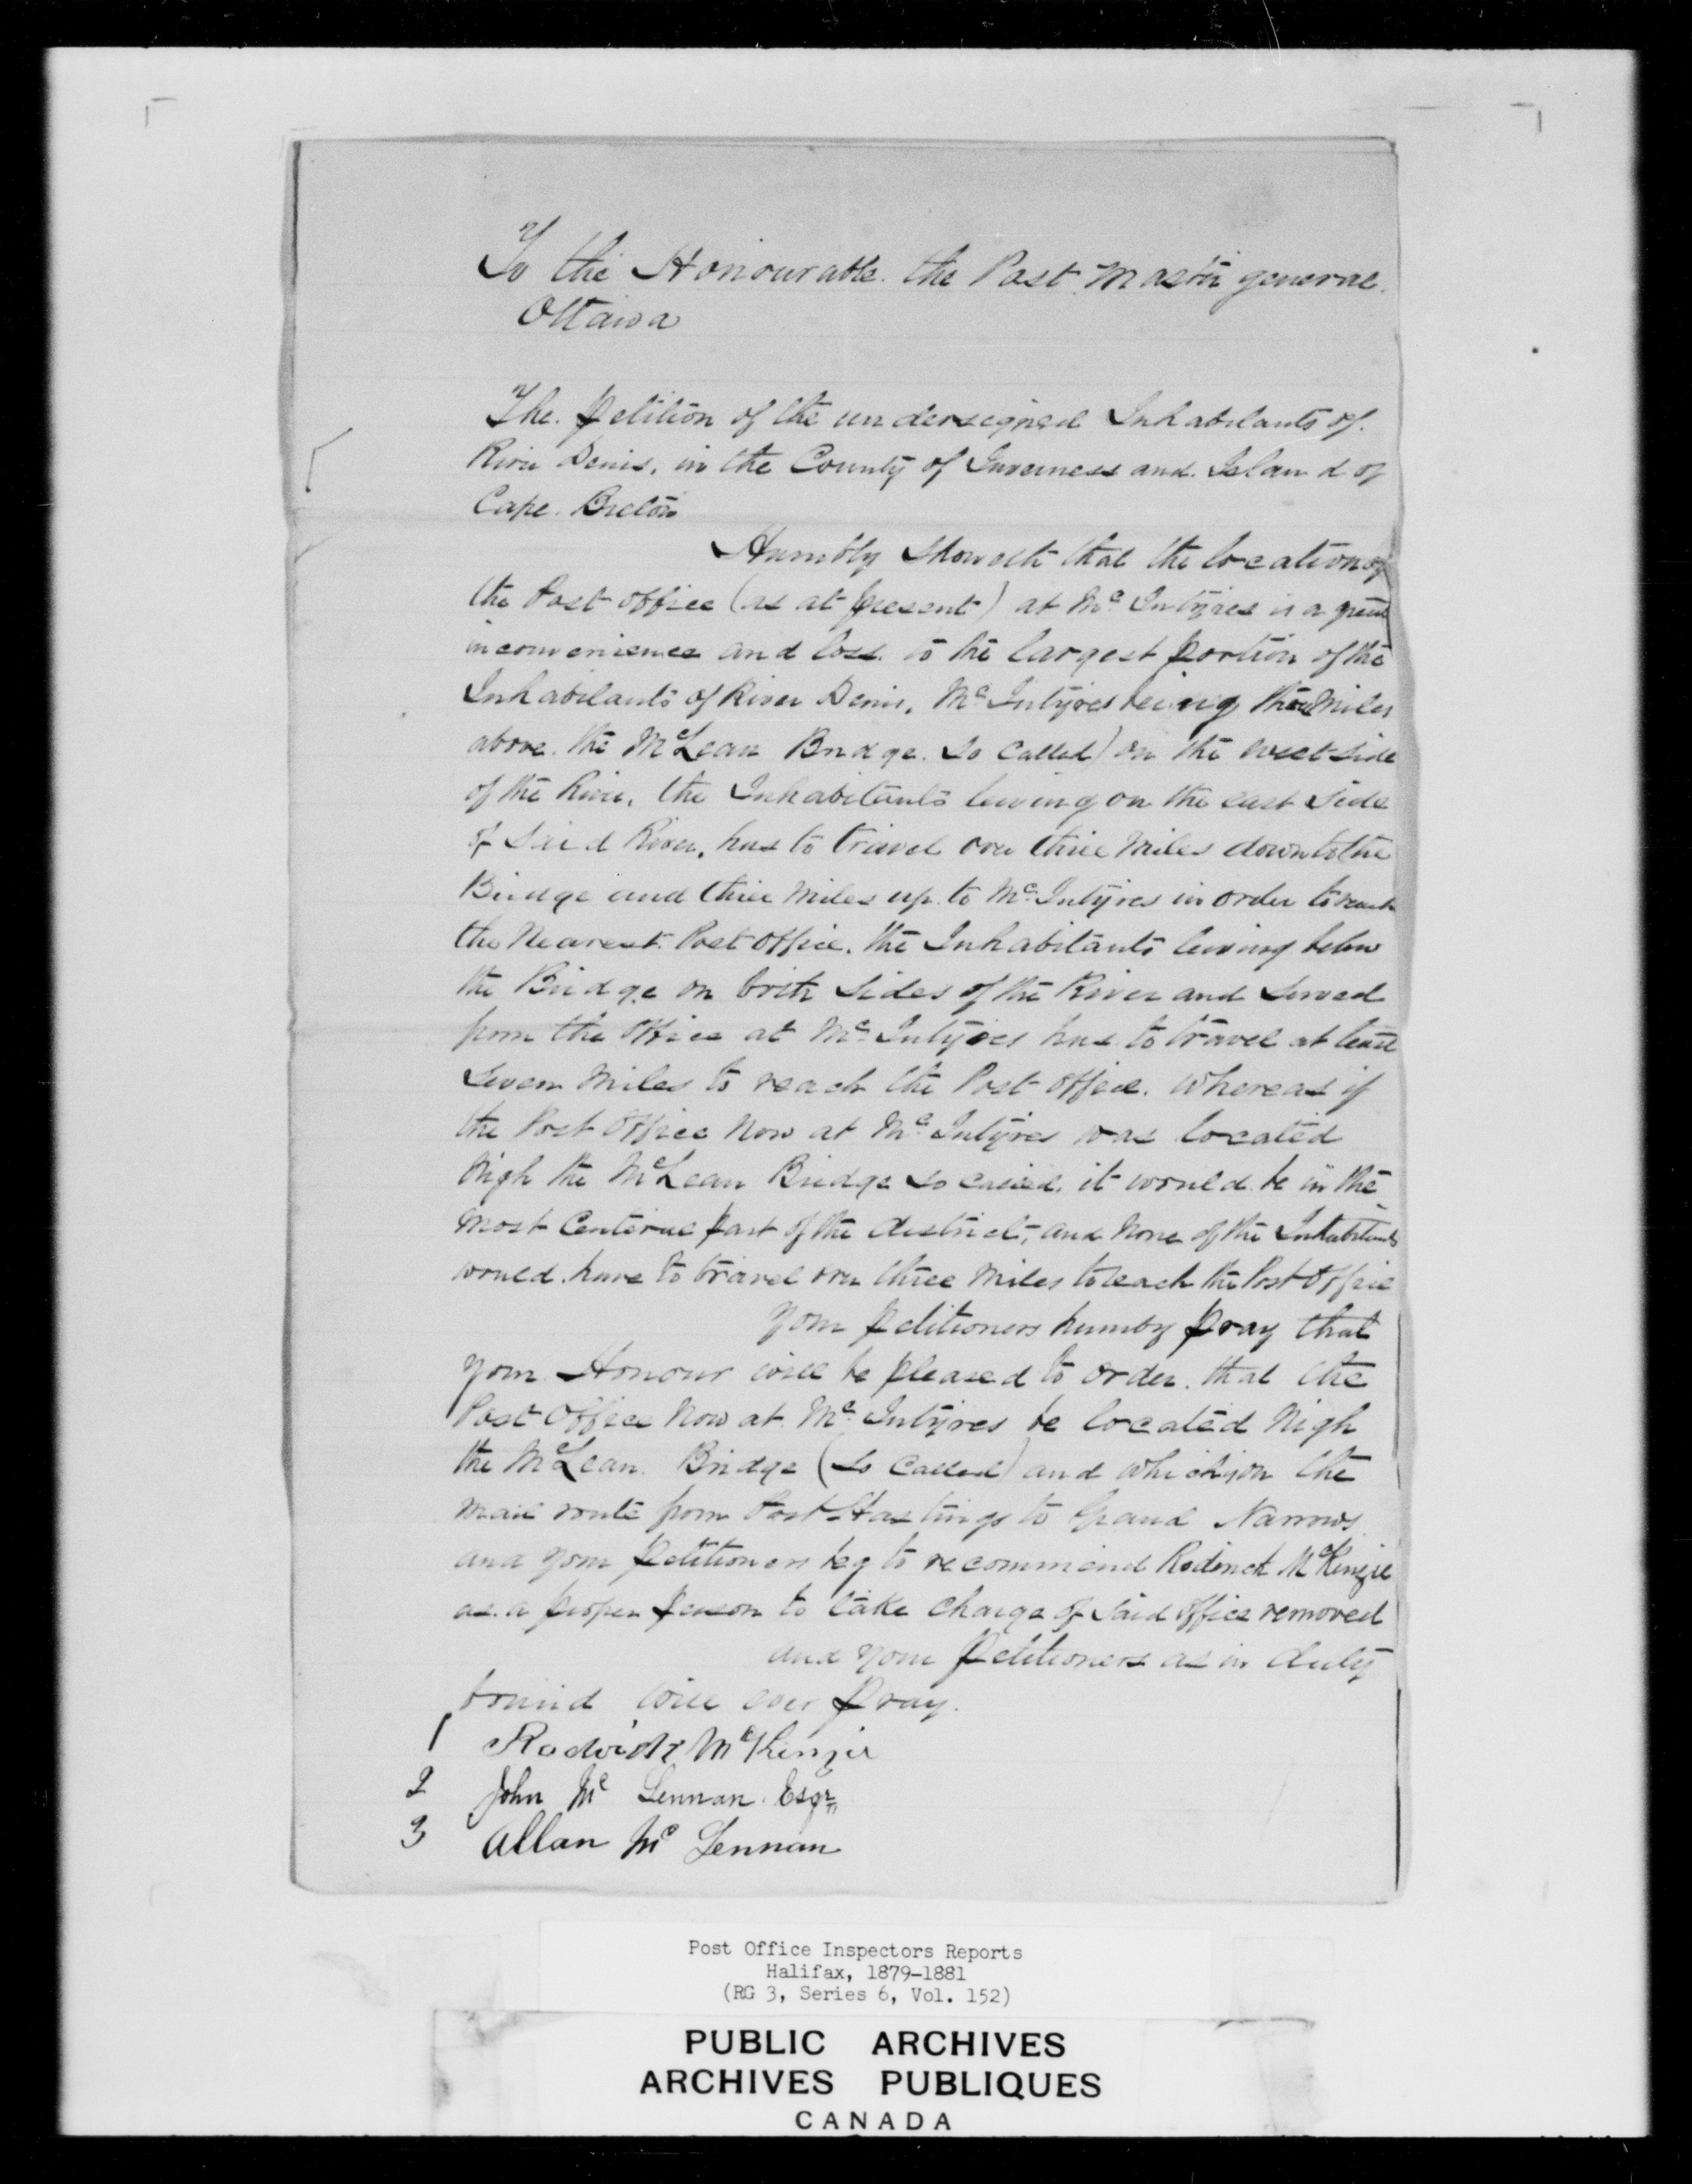 To the Honourable the Post Master general
Ottawa
The Petition of the undersigned Inhabitants of
River Denis, in the County of Inverness and Island of
Cape Breton
Humbly Showeth that the location of
the Post office (as at present) at Mc Intyres is a great
inconvenience and loss to the largest portion of the
Inhabitants of River Denis, Mc Intyres being three Miles
above the McLean Bridge So Called) on the west side
of the River, the Inhabitants leving on the east Side
of Said River, has to travel over three Miles down to the
Bridge and three Miles up to Mc Intyres in order to reach
the Nearest Post office, the Inhabitants leving below
the Bridge on both Sides of the River and Served
from the office at Mc Intyres has to travel at least
Seven Miles to reach the Post office. whereas if
the Post Office Now at Mc Intyres was located
Nigh the McLean Bridge so called, it would be in the
Most Centeral part of the district, and None of the Inhabitants
would have to travel over three Miles to reach the Post Office
Your Petitioners humbly pray that
your Honour will be pleased to order that the
Post Office Now at Mc Intyres be located Nigh
the McLean Bridge (So Called) and which is on the
Mail route from Port Hastings to Grand Narrows
and your Petitioners beg to recommend Roderick McKenzie
as a proper person to take Charge of Said office removed
and your Petitioners as in duty
bound will ever pray.
1 Rodrick McKenzie
2 John Mc Lennan Esqr
3 Allan Mc Lennan
Post Office Inspectors Reports
Halifax, 1879-1881
(RG 3, Series 6, Vol. 152)
PUBLIC ARCHIVES
ARCHIVES PUBLIQUES
CANADA